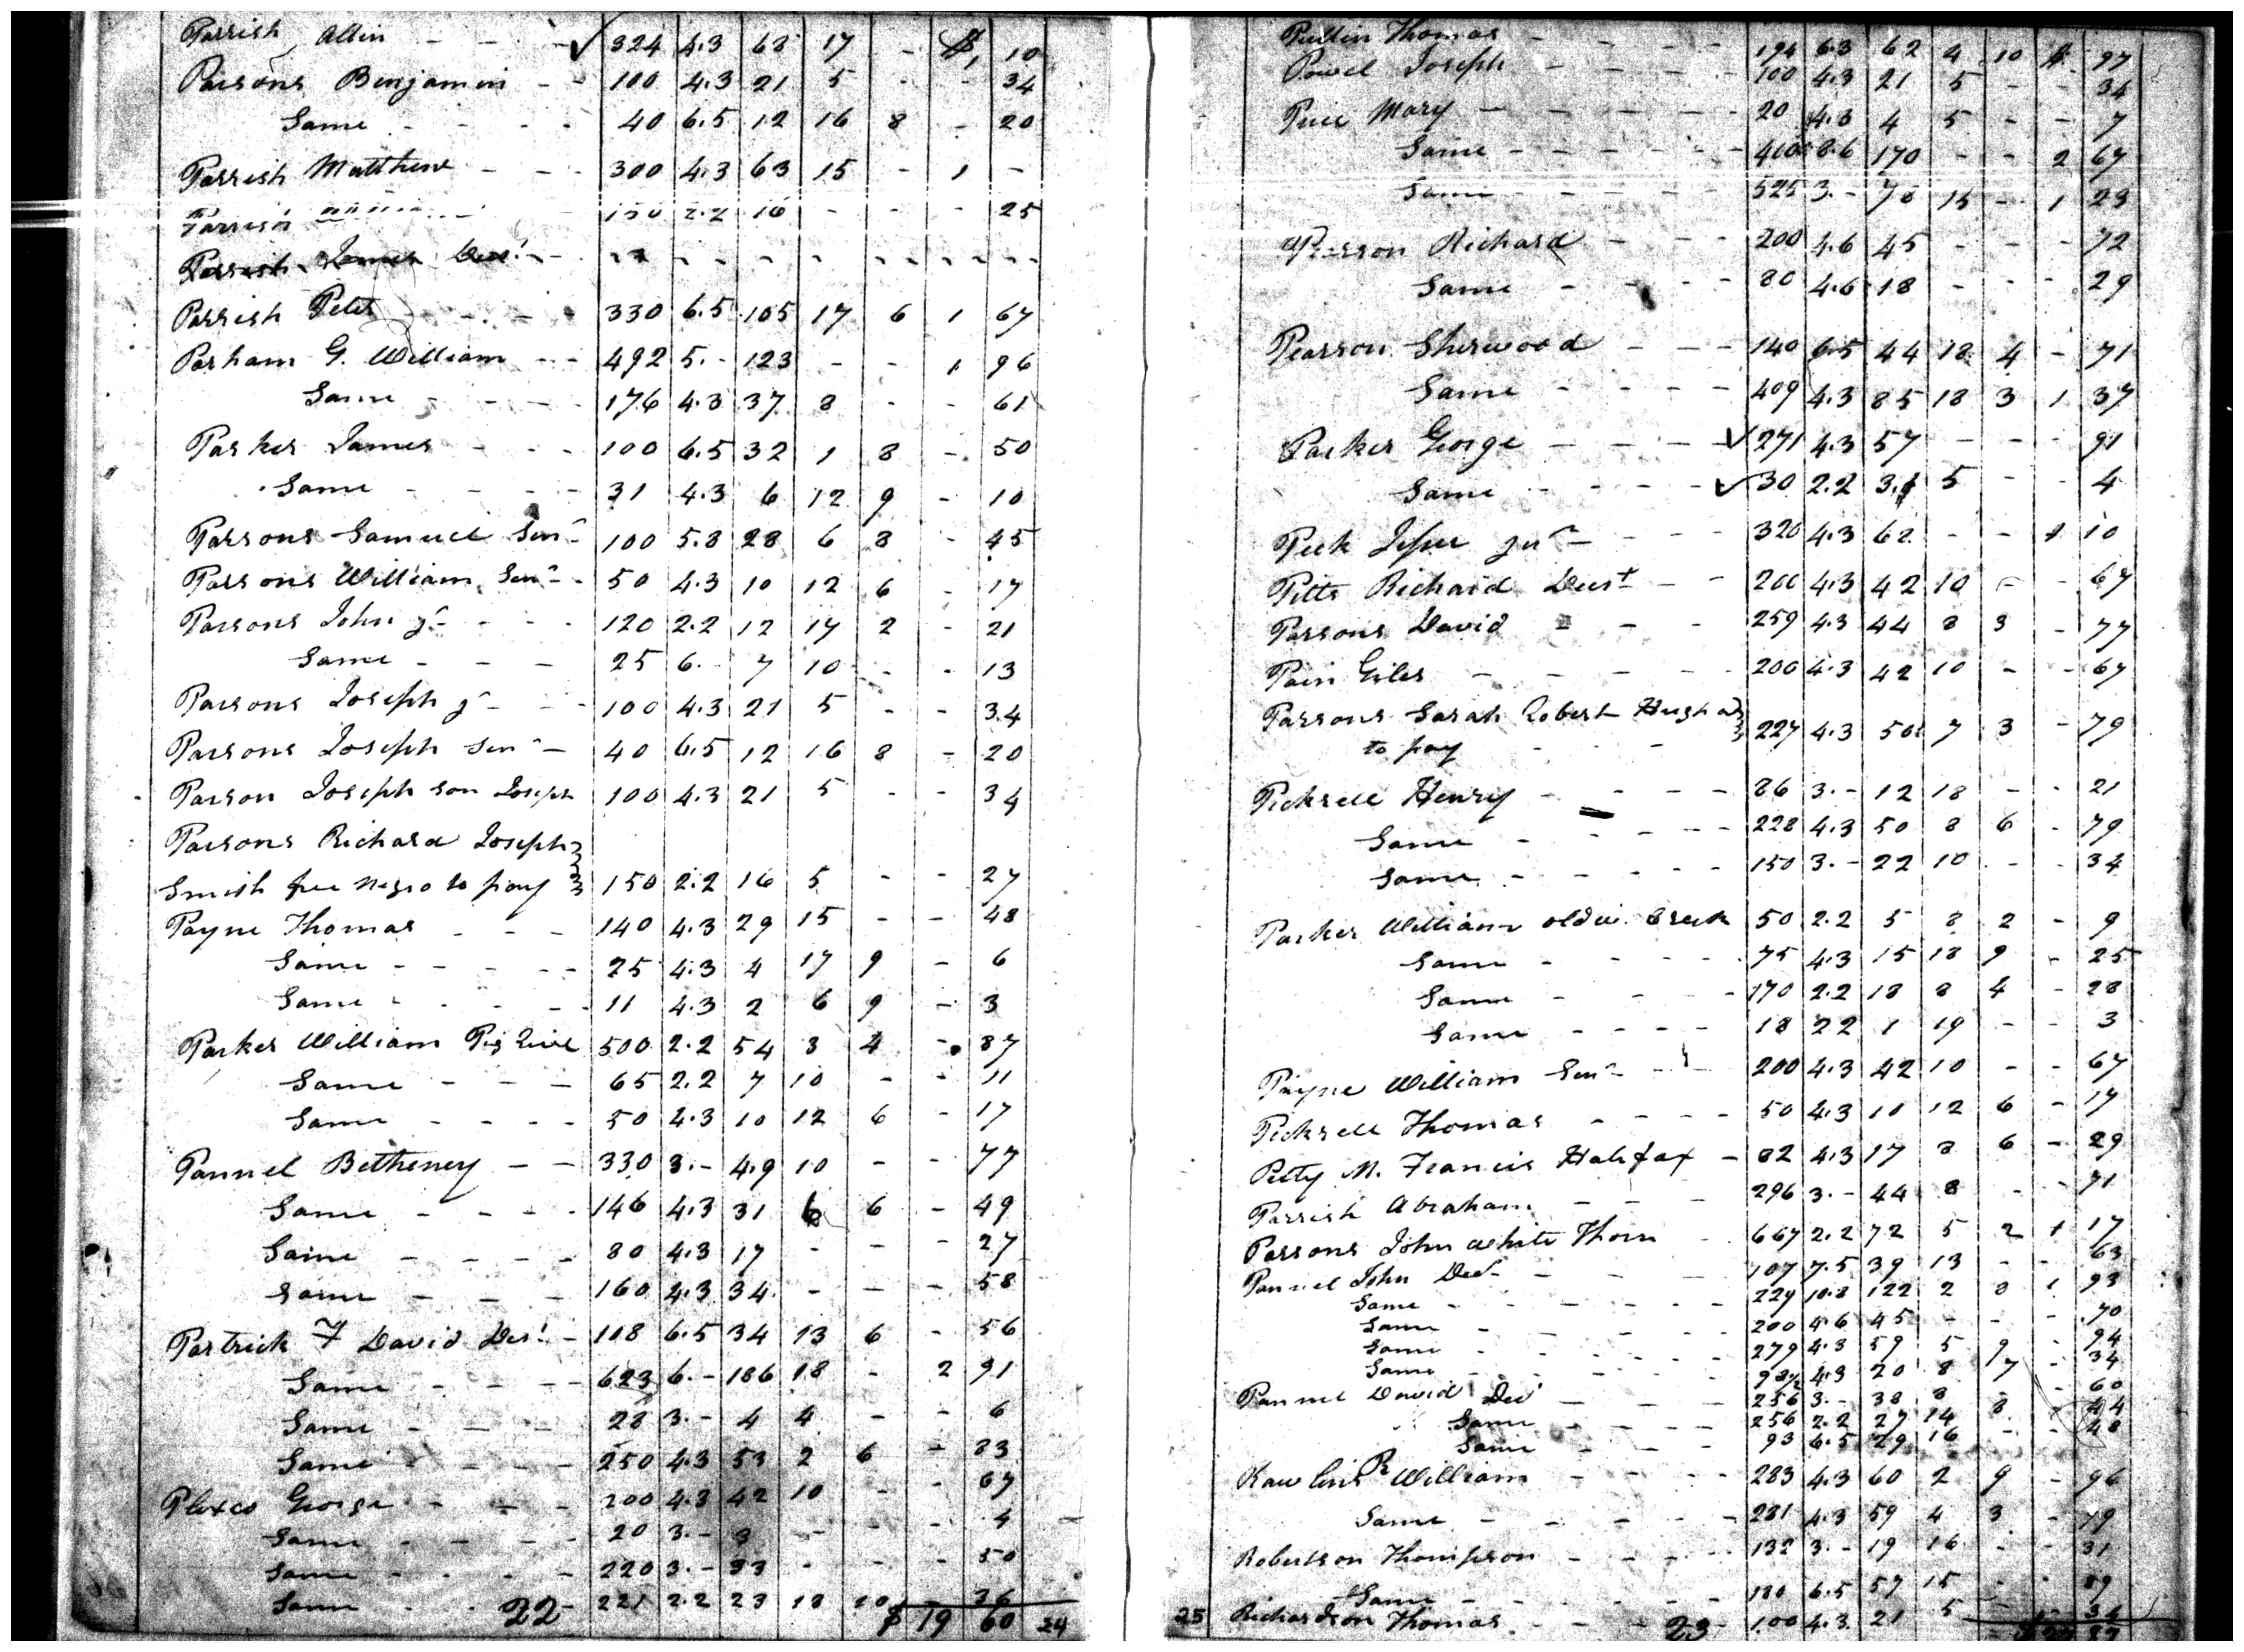 Parrish Allin - - - ✓ 324 4.3 68 17 - $1, 10
Parsons Benjamin - - 100 4.3 21 5 - - 34
Same - - - - 40 6.5 12 16 8 - 20
Parrish Matthew - - - 300 4.3 63 15 - 1 -
Parrish 150 2.2 16 - - - 25
Parrish James Dec.d - - - - - - - - -
Parrish Peter - - - 330 6.5 105 17 6 1 67
Parham G. William - - 492 5.- 123 - - 1 96
Same - - - - 176 4.3 37 8 - - 61
Parker James - - - 100 6.5 32 1 8 - 50
Same - - - - 31 4.3 6 12 9 - 10
Parsons Samuel Senr - 100 5.8 28 6 8 - 45
Parsons William Senr - 50 4.3 10 12 6 - 17
Parsons John jr - - - 120 2.2 12 17 2 - 21
Same - - - 25 6.- 7 10 - - 13
Parsons Joseph jr - - - 100 4.3 21 5 - - 34
Parsons Joseph Senr - 40 6.5 12 16 8 - 20
Parson Joseph son Joseph 100 4.3 21 5 - - 34
Parsons Richard Joseph
Smith free negro to pay 150 2.2 16 5 - - 27
Payne Thomas - - - 140 4.3 29 15 - - 48
Same - - - - - 25 4.3 4 17 9 - 6
Same - - - - - 11 4.3 2 6 9 - 3
Parker William Pig 500 2.2 54 3 4 - 87
Same - - - 65 2.2 7 10 - - 11
Same - - - - 50 4.3 10 12 6 - 17
Pannel Betheney - - 330 3.- 49 10 - - 77
Same - - - - 146 4.3 31 6 6 - 49
Same - - - - 80 4.3 17 - - - 27
Same - - - 160 4.3 34 - - - 58
Partrick F David Des.t - 108 6.5 34 13 6 - 56
Same - - - - 623 6.- 186 18 - 2 91
Same - - - - 28 3.- 4 4 - - 6
Same - - - - 250 4.3 53 2 6 - 83
Plexco George - - - 200 4.3 42 10 - - 67
Same - - - - 20 3.- 3 - - - 4
Same - - - - 220 3.- 33 - - - 50
Same - - 221 2.2 23 18 10 - 36
22 $ 19 60 24
Pullin Thomas - - - - 194 6.3 62 4 10 $ 97
Powel Joseph - - - - 100 4.3 21 5 - - 34
Price Mary - - - - - 20 4.3 4 5 - - 7
Same - - - - - - 400 8.6 170 - - 2 67
Same - - - - - 525 3.- 78 15 - 1 23
Pearson Richard - - - 200 4.6 45 - - - 72
Same - - - - 80 4.6 18 - - - 29
Pearson Sherwood - - - 140 6.5 44 18 4 - 71
Same - - - - 409 4.3 85 18 3 1 37
Parker George - - - - ✓ 271 4.3 57 - - - 91
Same - - - - ✓ 30 2.2 3. 5 - - 4
Peek jur - - - 320 4.3 62 - - 1 10
Pitts Richard Dest - - 200 4.3 42 10 - - 67
Parsons David - - - 259 4.3 44 8 3 - 77
Pain Giles - - - - - 200 4.3 42 10 - - 67
Parsons Sarah Robert Hugh
to pay - - - 227 4.3 50 7 3 - 79
Pickrell Henry - - - - 86 3.- 12 18 - - 21
Same - - - - - 228 4.3 50 8 6 - 79
Same - - - - - 150 3.- 22 10 - - 34
Parker William Creek 50 2.2 5 8 2 - 9
Same - - - - 75 4.3 15 18 9 - 25
Same - - - - 170 2.2 18 8 4 - 28
Same - - - - 18 2.2 1 19 - - 3
Payne William Senr - - 200 4.3 42 10 - - 67
Pickrell Thomas - - - - 50 4.3 10 12 6 - 17
Petty M. Francis Halifax - 82 4.3 17 8 6 - 29
Parrish Abraham - - - 296 3.- 44 8 - - 71
Parsons John white Thorn - 667 2.2 72 5 2 1 17
Pannel John Dec.d - - - 107 7.5 39 13 - - 63
Same - - - - - - 229 10.8 122 2 8 1 93
Same - - - - - 200 4.6 45 - - - 70
Same - - - - - 279 4.3 59 5 9 - 94
Same - - - - - 98½ 4.3 20 8 7 - 34
Pannel David Decd - - - 256 3.- 38 8 - - 60
Same - - - 256 2.2 27 14 8 - 44
Same - - - 93 6.5 29 16 - - 48
Rawlins R William - - - 283 4.3 60 2 9 - 96
Same - - - - - 281 4.3 59 4 3 - 79
Robertson Thompson - - - - 132 3.- 19 16 - - 31
Same - - - - - 180 6.5 57 15 - - 89
25 Richardson Thomas - - - 23 - 100 4.3 21 5 - - 34